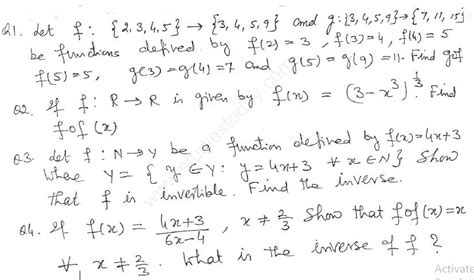 Q1. Let f: {2,3,4,5} → {3,4,5,9} and g: {3,4,5,9} → {7,11,15}
be functions defined by f(2)=3, f(3)=4, f(4)=5
f(5)=5, g(3)=g(4)=7 and g(5)=g(9)=11. Find gof
Q2. If f: R→R is given by f(x) = (3-x³)^{1/3}. Find
fof(x)
Q3. Let f: N→Y be a function defined by f(x)=4x+3
Where Y= { y ∈ Y: y=4x+3 ∀ x∈N} Show
that f is invertible. Find the inverse.
Q4. If f(x) = \frac{4x+3}{6x-4}, x ≠ \frac{2}{3} Show that fof(x)=x
∀, x ≠ \frac{2}{3}. What is the inverse of f?
Activate